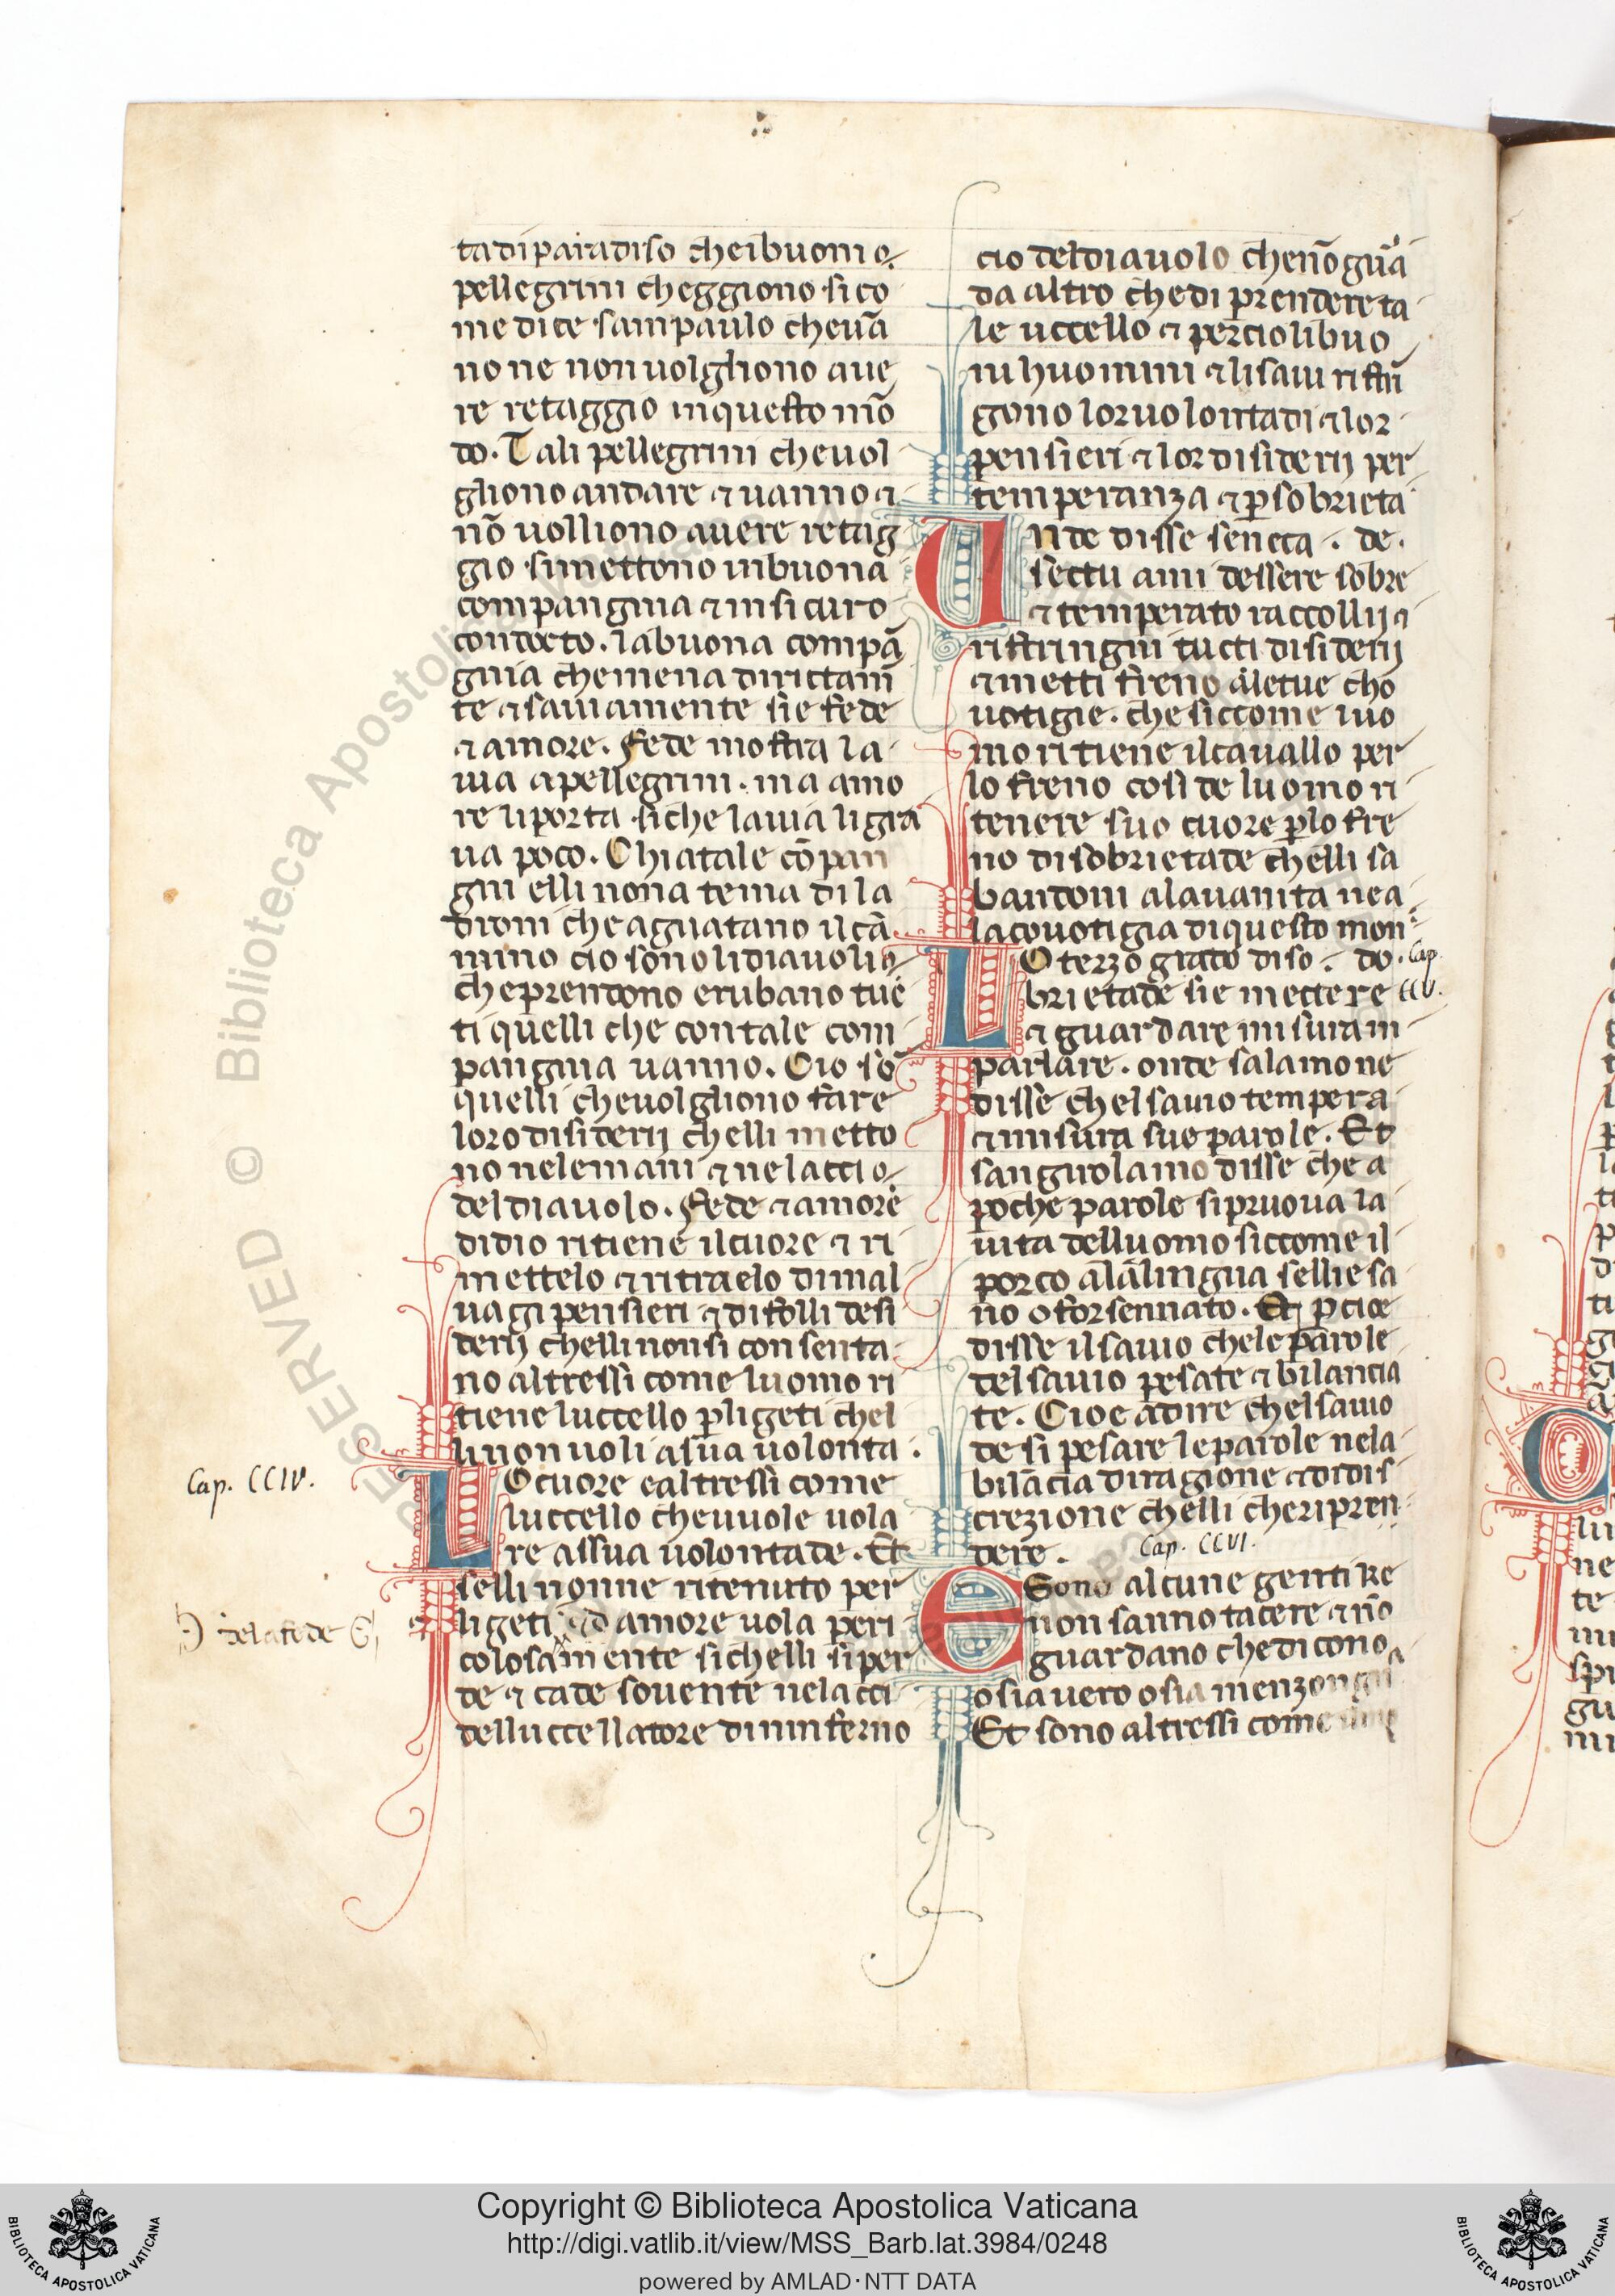 tadi paradiso cheibuoni
pellegrini cheggiono sico
me dice sampaulo cheuā
no ne nonuolgliono aue
re retaggio inquesto mō
do. Tali pellegrini cheuol
gliono andare ⁊ uanno ⁊
nō uolliono auere retag
gio simettono inbuona
compangnia ⁊ insicuro
condocto. labuona compā
gnia chemena dirictam̄
te ⁊ sauiamente sie fede
⁊ amore. Fede mostra la
uia apellegrini. ma amo
re liporta siche lauia ligra
ua poco. Chiatale cōpan
gni elli nona tema dila
droni che aguatano ilca
mino cio sono lidiauoli
cheprendono erubano tuc
ti quelli che contale com
pangnia uanno. Cio sō
quelli cheuolgliono fare
loro disiderij chelli metto
no nelemani ⁊ nelaccio
deldiauolo. Fede ⁊ amore
didio ritiene ilcuore ⁊ ri
mettelo ⁊ ritraelo dimal
uagi pensieri ⁊ difolli desi
derij chelli nonsi consenta
no altressi come luomo ri
tiene luccello pligeti chel
li non uoli asua uolonta.
LO cuore ealtressi come
luccello cheuuole uola
re assua uolontade. Et
selli nonne ritenuto per
ligeti d amore uola peri
colosamente sichelli siper
de ⁊ cade souente nelacci
delluccellatore dininferno
Cap. CCIV.
dela fede
cio deldiauolo chenō guā
da altro chedi prendere ta
le uccello ⁊ perciolibuo
ni huomini ⁊ lisaui ristrī
gono lor uolontadi ⁊ lor
pensieri ⁊ lor disiderij per
temperanza ⁊ p sobrieta
Unde disse seneca. de.
sectu ami dessere sobre
⁊ temperato raccollij ⁊
ristringni tucti disiderij
⁊ metti freno aletue cho
uotigie. che siccome luo
mo ritiene ilcauallo per
lo freno cosi de luomo ri
tenere suo cuore plo fre
no disobrietade chelli sa
bandoni alauanita nea
lacouotigia diquesto mon
LO terzo grato diso. do.
Cap.
CCV.
brietade sie mectere
⁊ guardare misura in
parlare. onde salamone
disse chel sauio tempera
⁊ misura sue parole. Et
sangirolamo disse che a
poche parole sipruoua la
uita delluomo siccome il
porco alalingua sellie sa
no oforsennato. Et pcioe
disse ilsauio chele parole
delsauio pesate ⁊ bilancia
te. Cioe adire chelsauio
de si pesare leparole nela
bilācia diragione ⁊ didis
crezione chelli cheripren
dere.
Cap. CCVI.
E Sono alcune genti ke
non sanno tacere ⁊ nō
guardano chedicono
osia uero osia menzongna
Et sono altressi come
Copyright © Biblioteca Apostolica Vaticana
http://digi.vatlib.it/view/MSS_Barb.lat.3984/0248
powered by AMLAD·NTT DATA
BIBLIOTECA APOSTOLICA VATICANA
BIBLIOTECA APOSTOLICA VATICANA